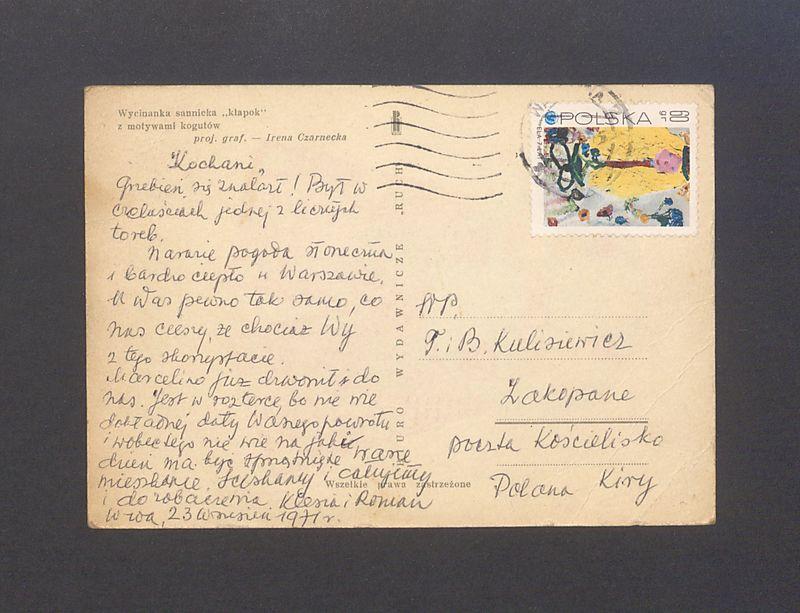 Wycinanka sannicka „kłapok“
z motywami kogutów
proj. graf. — Irena Czarnecka
Kochani,
grzebień się znalazł! Był w
czeluściach jednej z licznych
toreb.
Narazie pogoda słoneczna
i bardzo ciepło w Warszawie.
U Was pewno tak samo, co
nas cieszy, że chociaż Wy
z tego skorzystacie.
Marcelina już dzwoniła do
nas. Jest w rozterce, bo nie wie
dokładnej daty Waszego powrotu
i wobec tego nie wie na jaki
dzień ma być sprzątnięte Wasze
mieszkanie. Ściskamy, całujemy
i do zobaczenia Klesia i Roman
W-wa, 23 wrzesień 1971 r.
BIURO WYDAWNICZE „RUCH“
Wszelkie prawa zastrzeżone
POLSKA
WP.
T. i B. Kulisiewicz
Zakopane
poczta Kościelisko
Polana Kiry